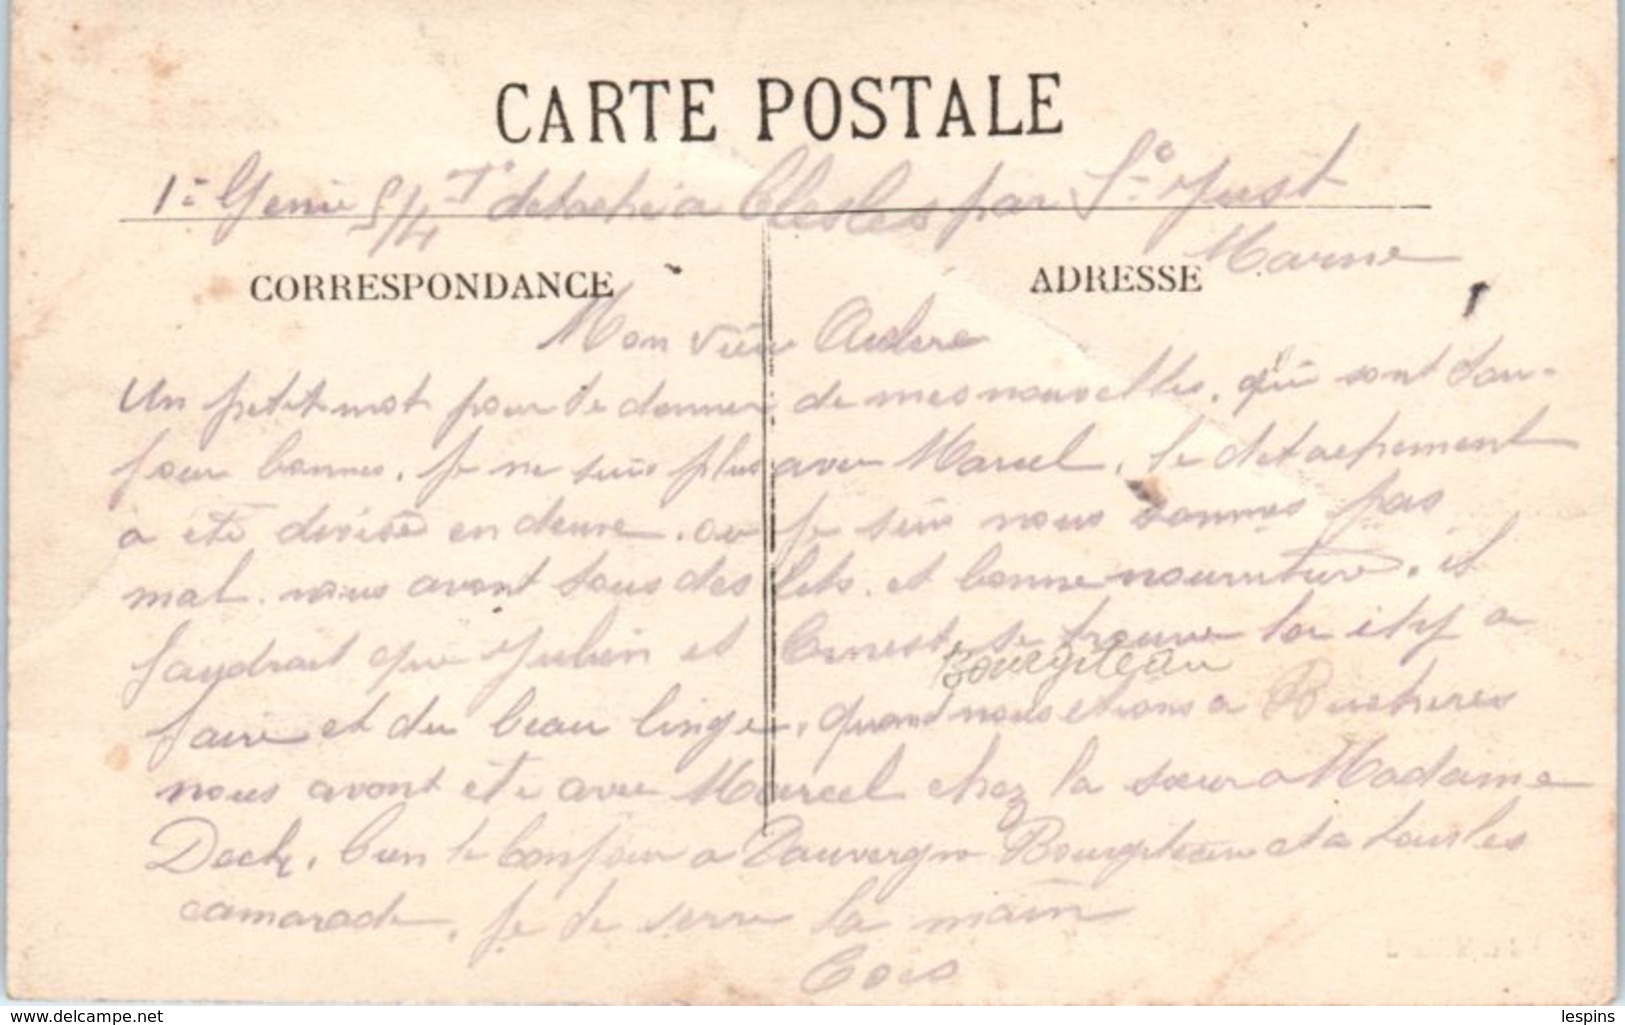 CARTE POSTALE
1e Genie 5/4 T detaché a Clesles par St Just
Marne
CORRESPONDANCE
ADRESSE
Mon vieu
Un petit mot pour te donner de mes nouvelles. qui sont tou-
jour bonnes. je ne suis plus avec Marcel, le detachement
a été divisé en deux. ou je suis nous sommes pas
mal. nous avont tous des lits. et bonne nourriture. il
faudrait que Julien et Ernest se trouve la et y a
Bourgiteau
faire et du beau linge, quand nous etions a Buchères
nous avont été avec Marcel chez la sœur a Madame
Deck, bien le bonjour a Dauvergne Bourgiteau et a tous les
camarade, je te serre la main
Cois
delcampe.net
lespins